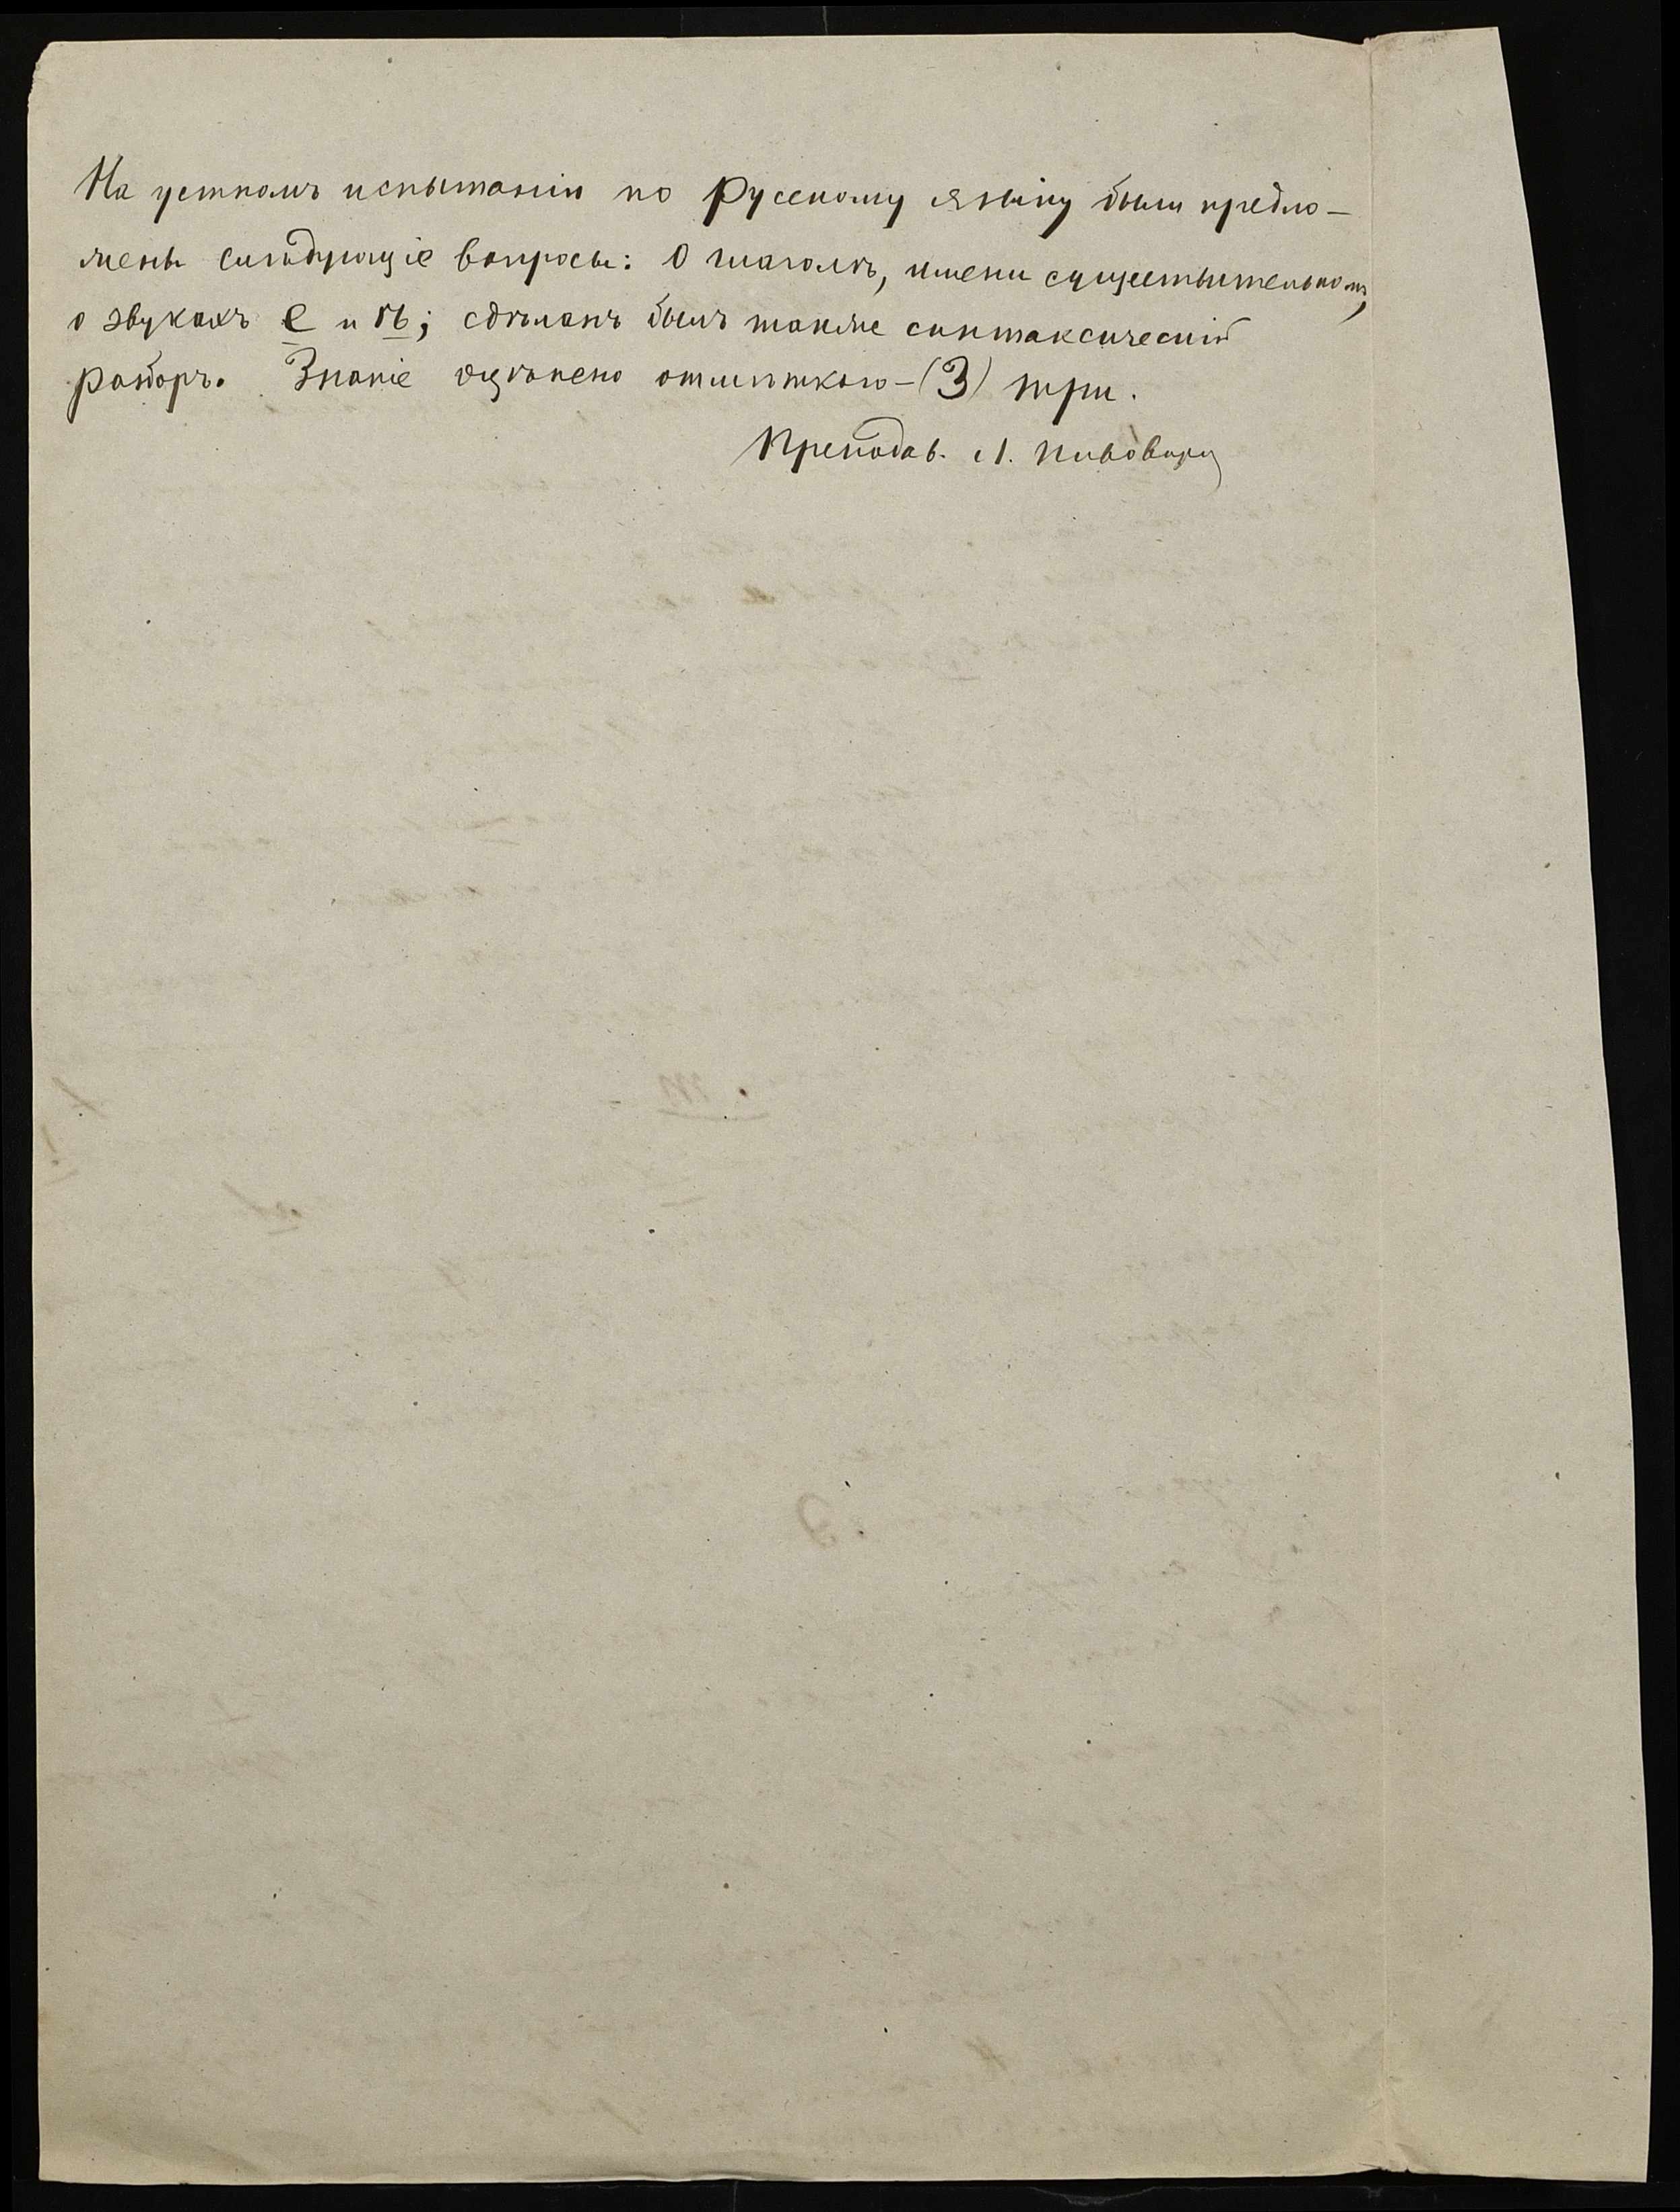 На устномъ испытаніи по русскому языку были предло-
жены слѣдующіе вопросы: О глаголѣ, имени существительномъ,
о звукахъ е и ѣ; сдѣланъ былъ также синтаксическій
разборъ. Знаніе оцѣнено отмѣткою – (3) три.
Преподав. А. Пивоваръ